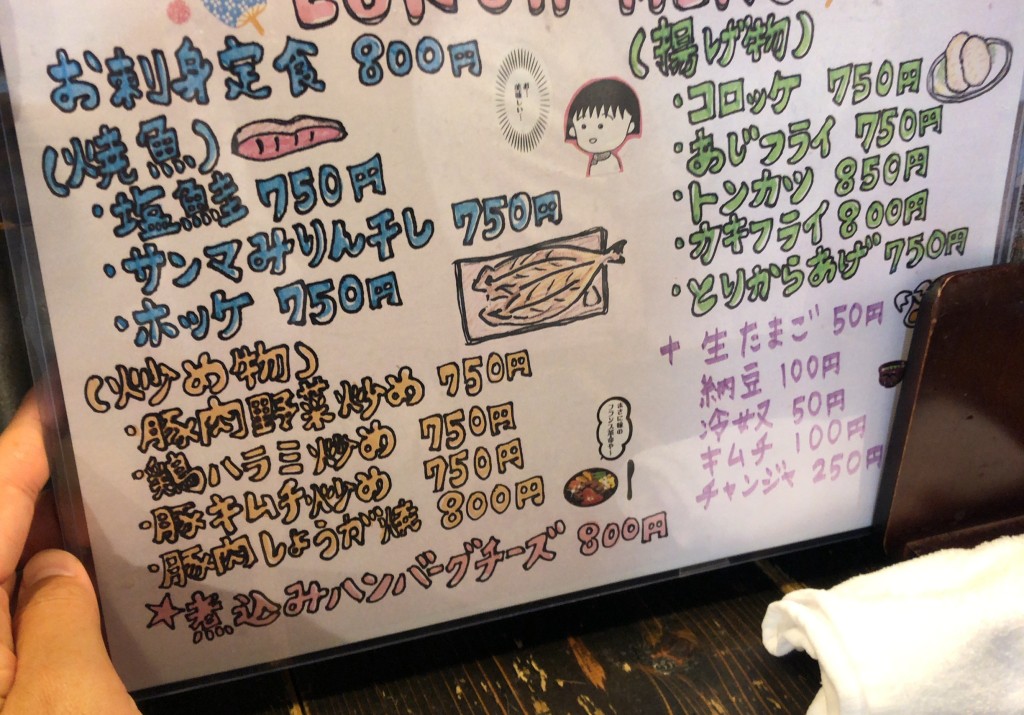 LUNCH MENU
お刺身定食 800円
(焼魚)
・塩鮭 750円
・サンマみりん干し 750円
・ホッケ 750円
(炒め物)
・豚肉野菜炒め 750円
・鶏ハラミ炒め 750円
・豚キムチ炒め 750円
・豚肉しょうが焼 800円
★煮込みハンバーグチーズ 800円
お〜美味しい〜
(揚げ物)
・コロッケ 750円
・あじフライ 750円
・トンカツ 850円
・カキフライ 800円
・とりからあげ 750円
+ 生たまご 50円
納豆 100円
冷奴 50円
キムチ 100円
チャンジャ 250円
まさに味の
フランス革命や〜